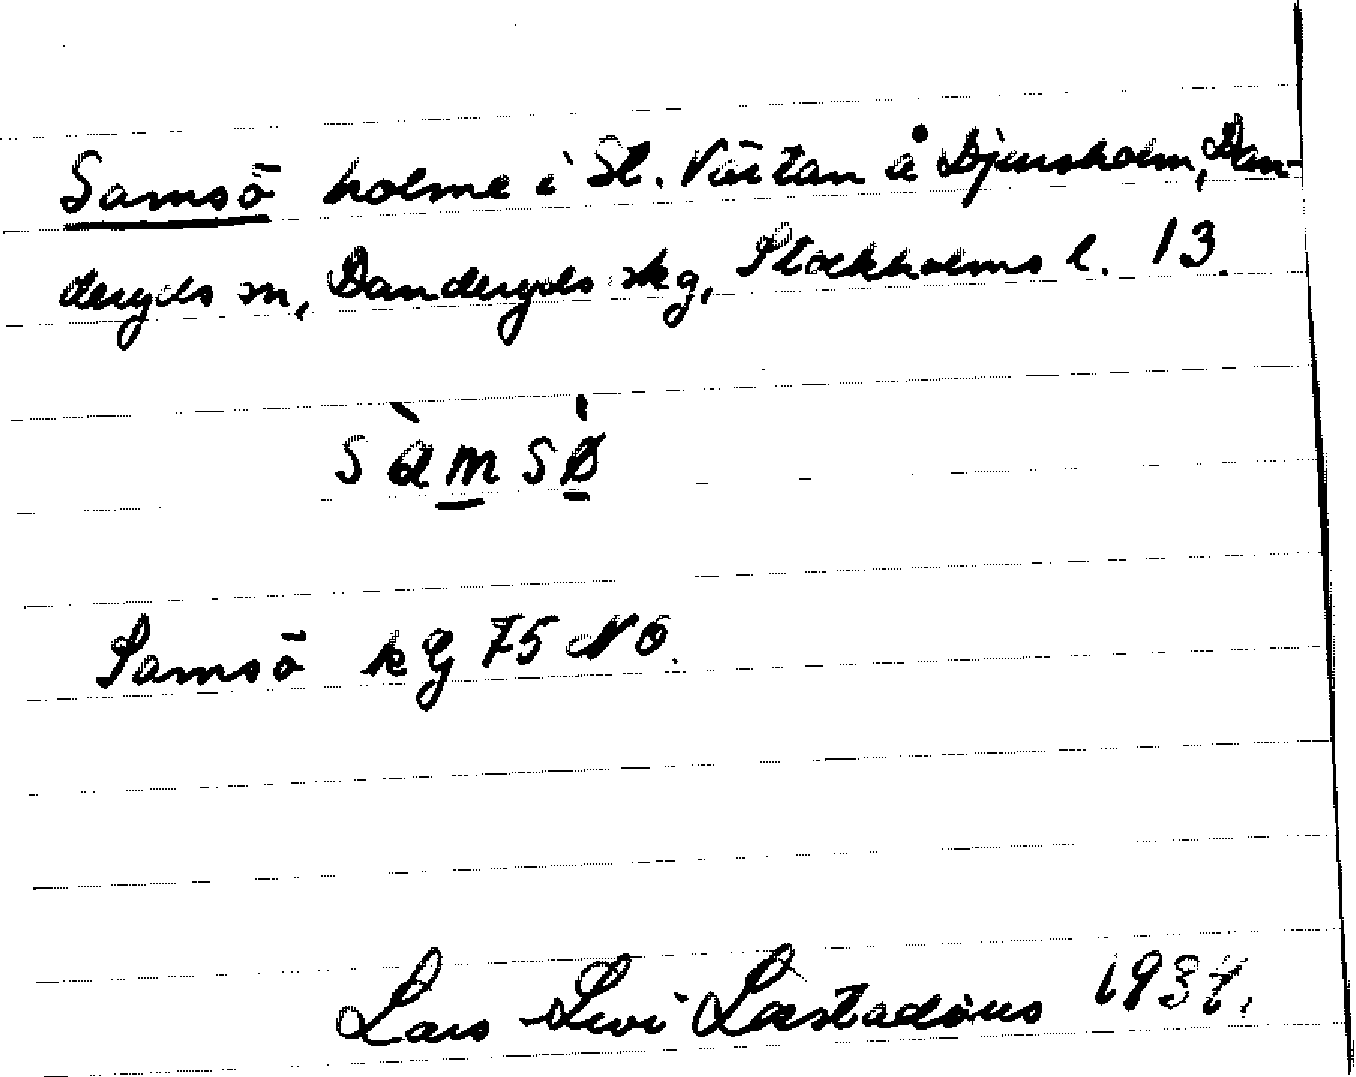 Samsö holme i St. Värtan å Djursholm, Dan-
deryds sn, Danderyds skg, Stockholms l. 13.
sàmsø̀
Samsö kg 75 NO.
Lars Levi Læstadius 1934.